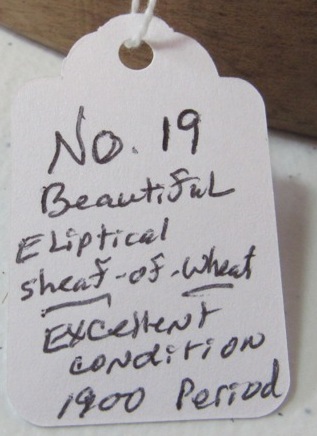 No. 19
Beautiful
Eliptical
sheaf-of-wheat
Excellent
condition
1900 Period